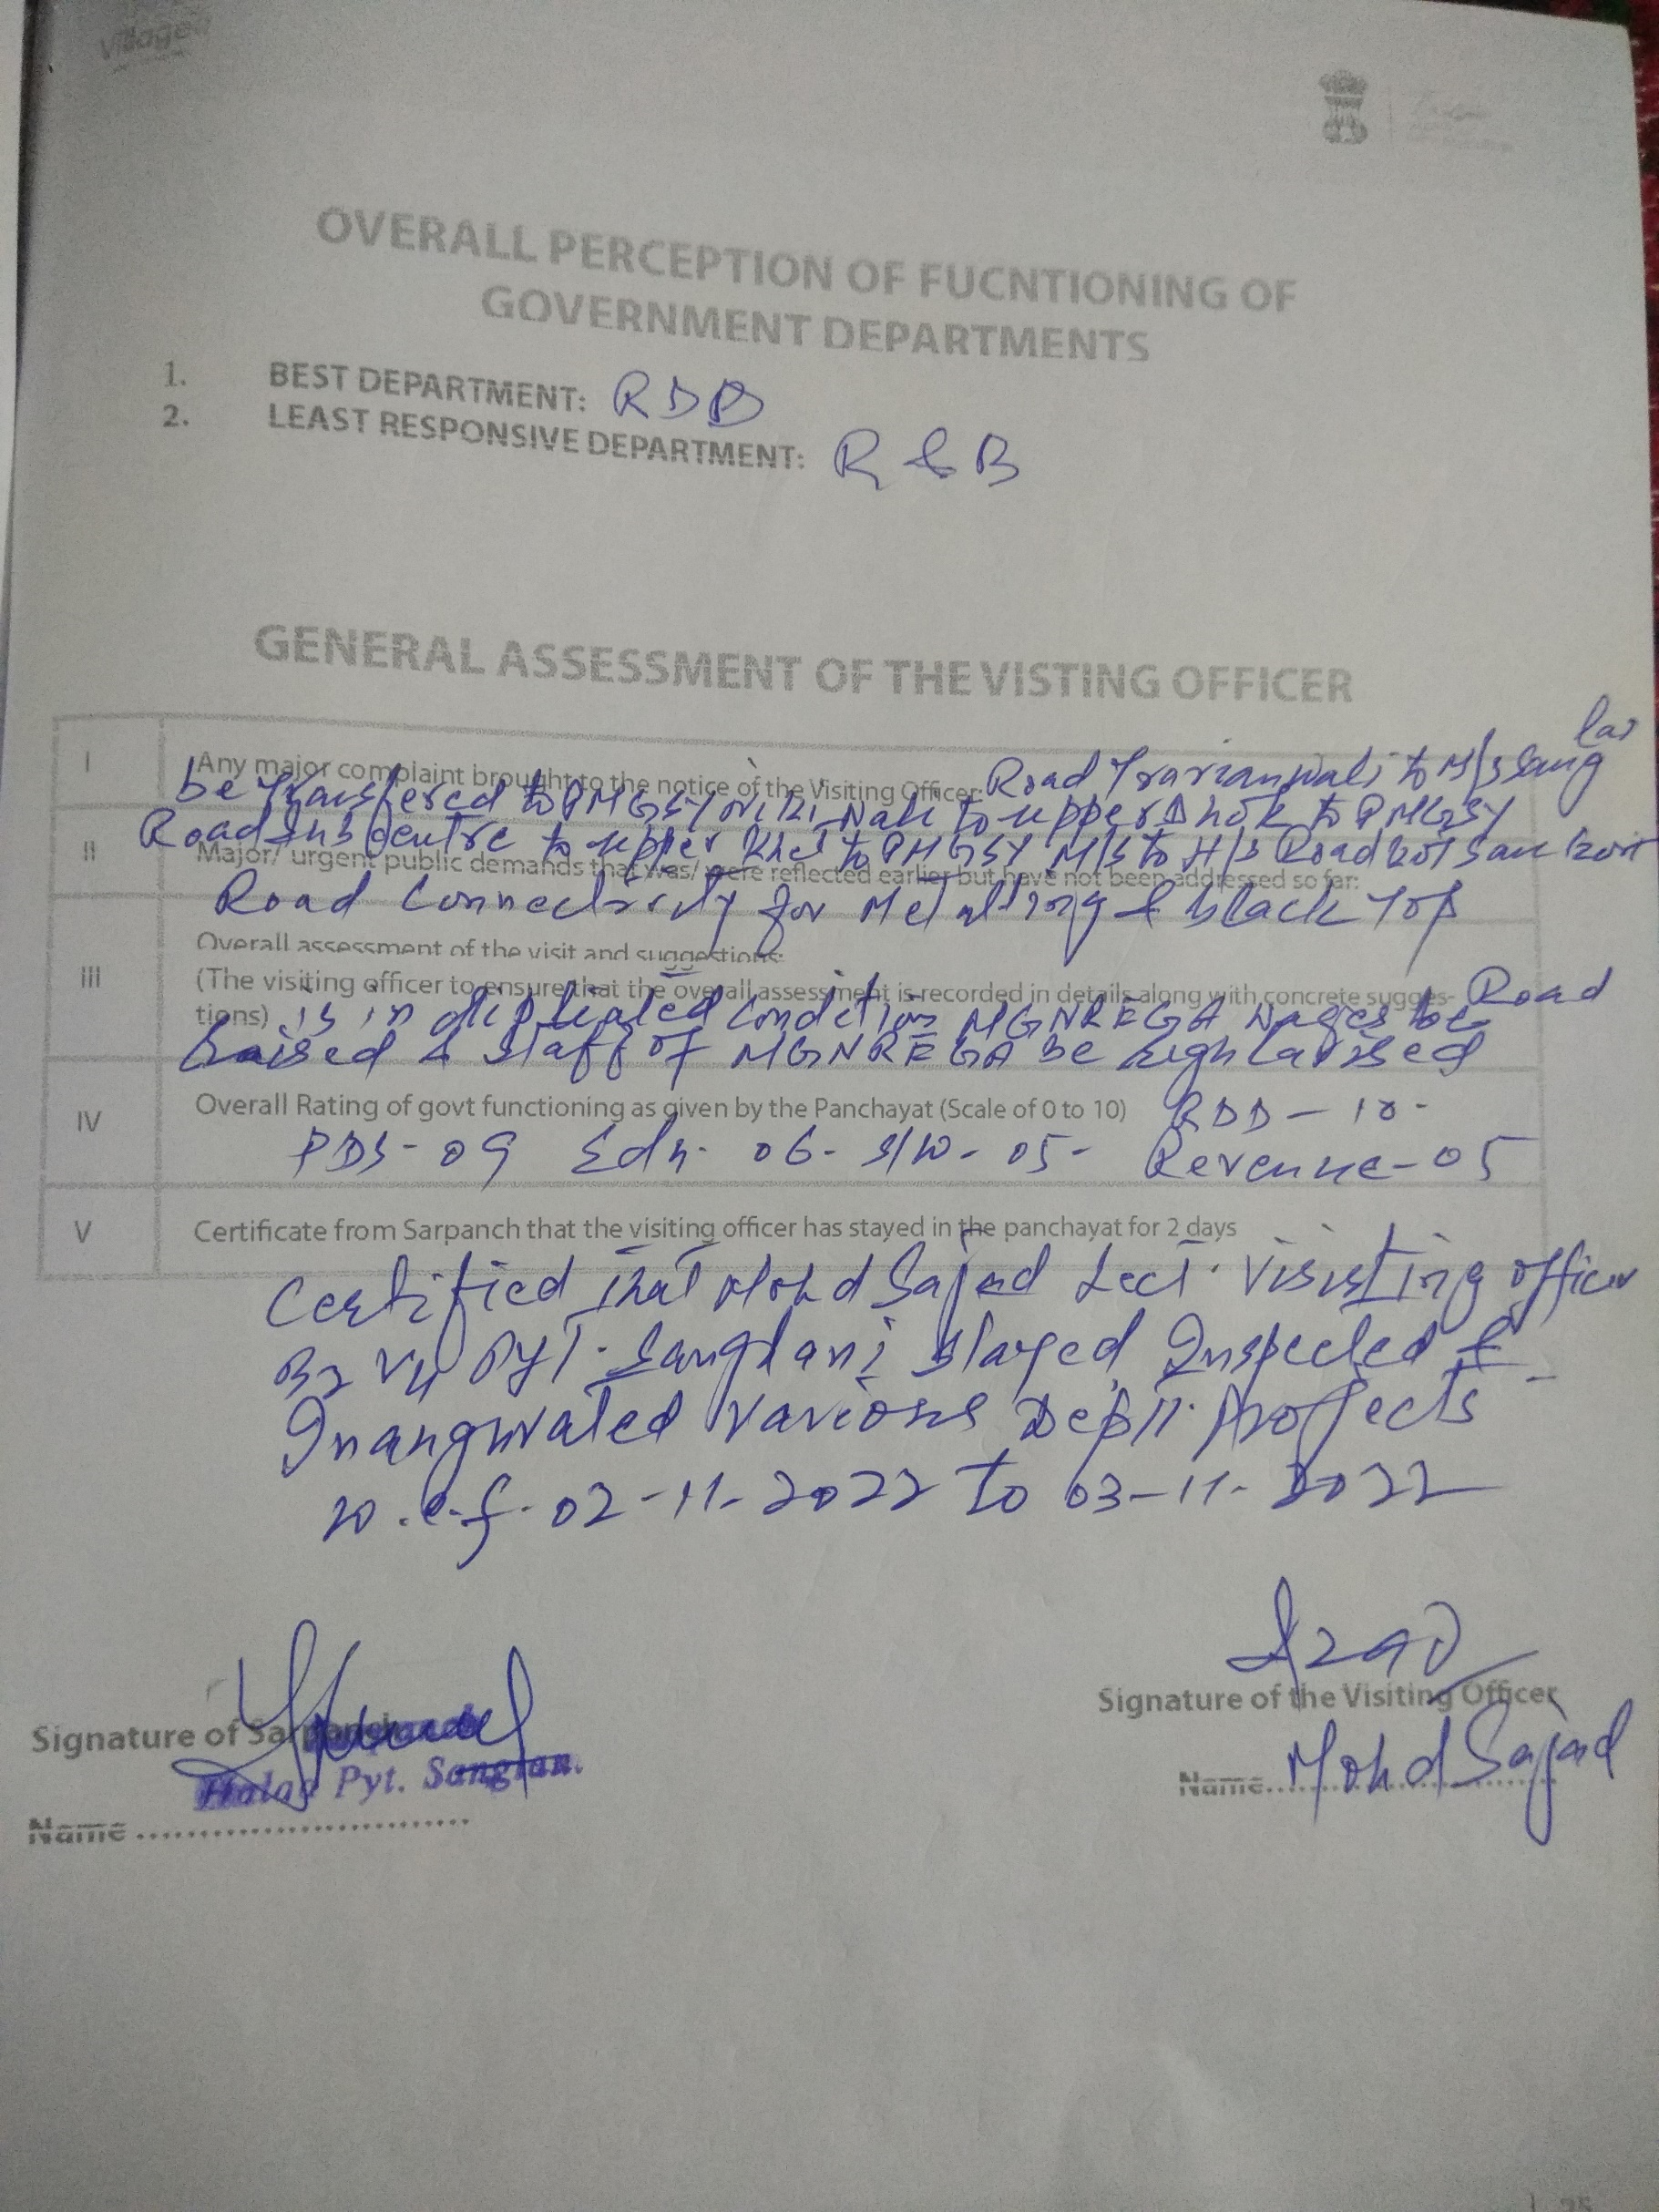 Village
OVERALL PERCEPTION OF FUCNTIONING OF
GOVERNMENT DEPARTMENTS
1. BEST DEPARTMENT: RDD
2. LEAST RESPONSIVE DEPARTMENT: R & B
GENERAL ASSESSMENT OF THE VISTING OFFICER
I Any major complaint brought to the notice of the Visiting Officer: Road to M/s Sang
be Transfered to PMGSY to upper Dhok to PMGSY
Road Subcentre to upper to PMGSY M/S to H/S Road
II Major/ urgent public demands that was/ were reflected earlier but have not been addressed so far:
Road Connectivity for Metalling & black Top
Overall assessment of the visit and suggestions:
III (The visiting officer to ensure that the overall assessment is recorded in details along with concrete sugges- Road
tions) is in condition MGNREGA wages be
raised & staff of MGNREGA be
IV Overall Rating of govt functioning as given by the Panchayat (Scale of 0 to 10) RDD - 10 -
PDS - 09 Edn. 06 - S/W - 05 - Revenue - 05
V Certificate from Sarpanch that the visiting officer has stayed in the panchayat for 2 days
Certified that Mohd Sajad Lect. Visisting officer
B2 V4 Pyt. stayed Inspected &
Inaugurated Various Deptt. Projects
w.e.f. 02-11-2022 to 03-11-2022
Azad
Signature of Sarpanch Signature of the Visiting Officer
Halqa Pyt. Sanglan.
Name Name Mohd Sajad